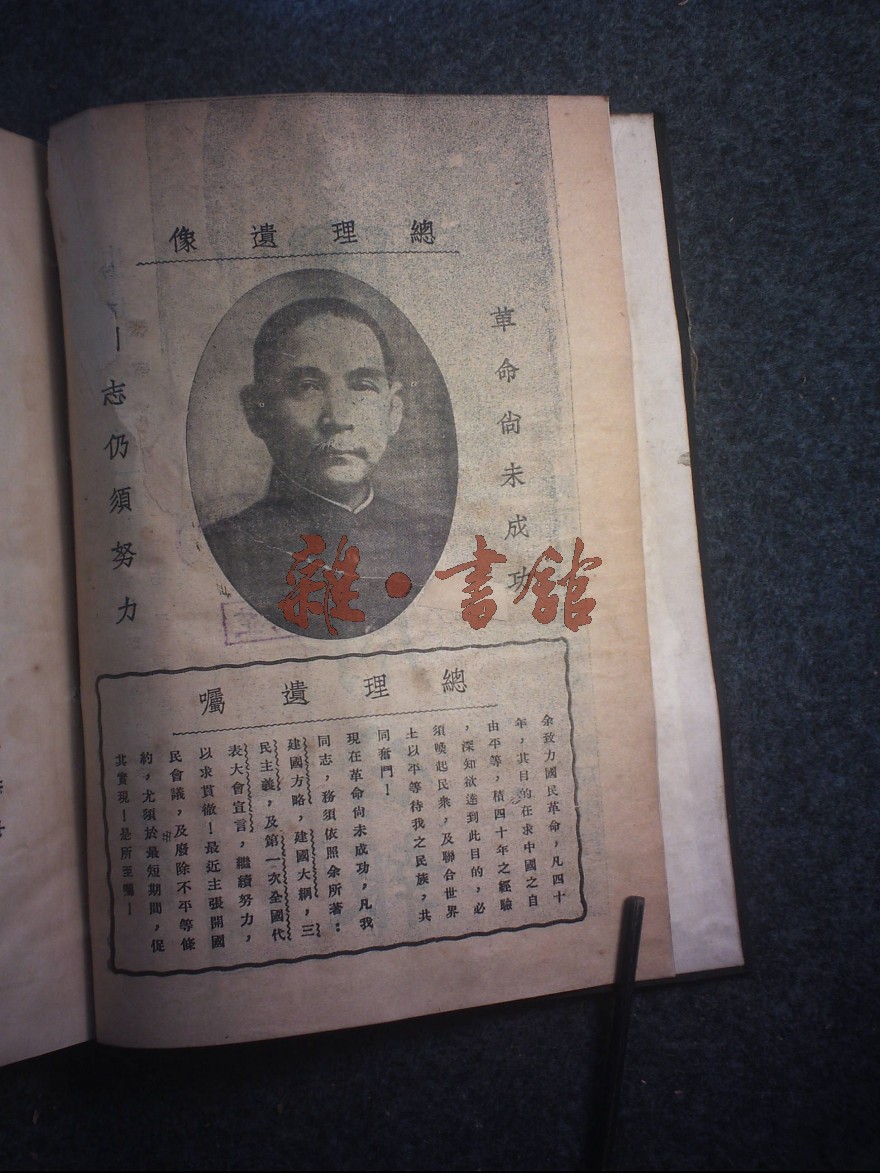 總理遺像
革命尙未成功
志仍須努力
總理遺囑
余致力國民革命，凡四十
年，其目的在求中國之自
由平等，積四十年之經驗
，深知欲達到此目的，必
須喚起民衆，及聯合世界
上以平等待我之民族，共
同奮鬥！
現在革命尙未成功，凡我
同志，務須依照余所著：
建國方略，建國大綱，三
民主義，及第一次全國代
表大會宣言，繼續努力，
以求貫徹！最近主張開國
民會議，及廢除不平等條
約，尤須於最短期間，促
其實現！是所至囑！
雜·書館